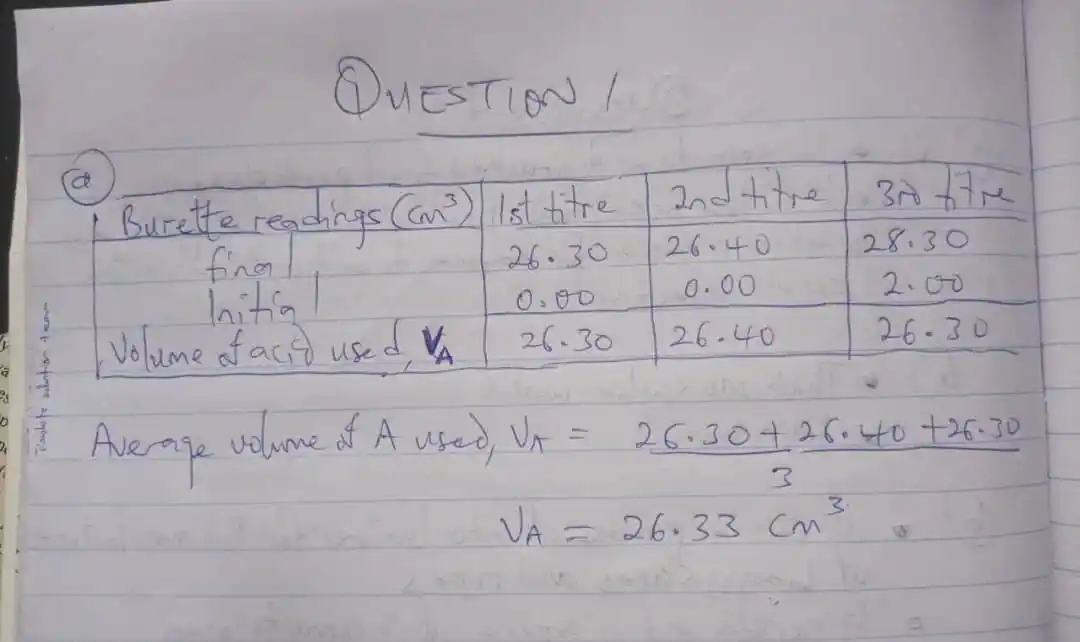 QUESTION 1
(a)
Burette readings (cm³) 1st titre 2nd titre 3rd titre
final 26.30 26.40 28.30
Initial 0.00 0.00 2.00
Volume of acid used, VA 26.30 26.40 26.30
Average volume of A used, VA = 26.30 + 26.40 + 26.30
3
VA = 26.33 cm³